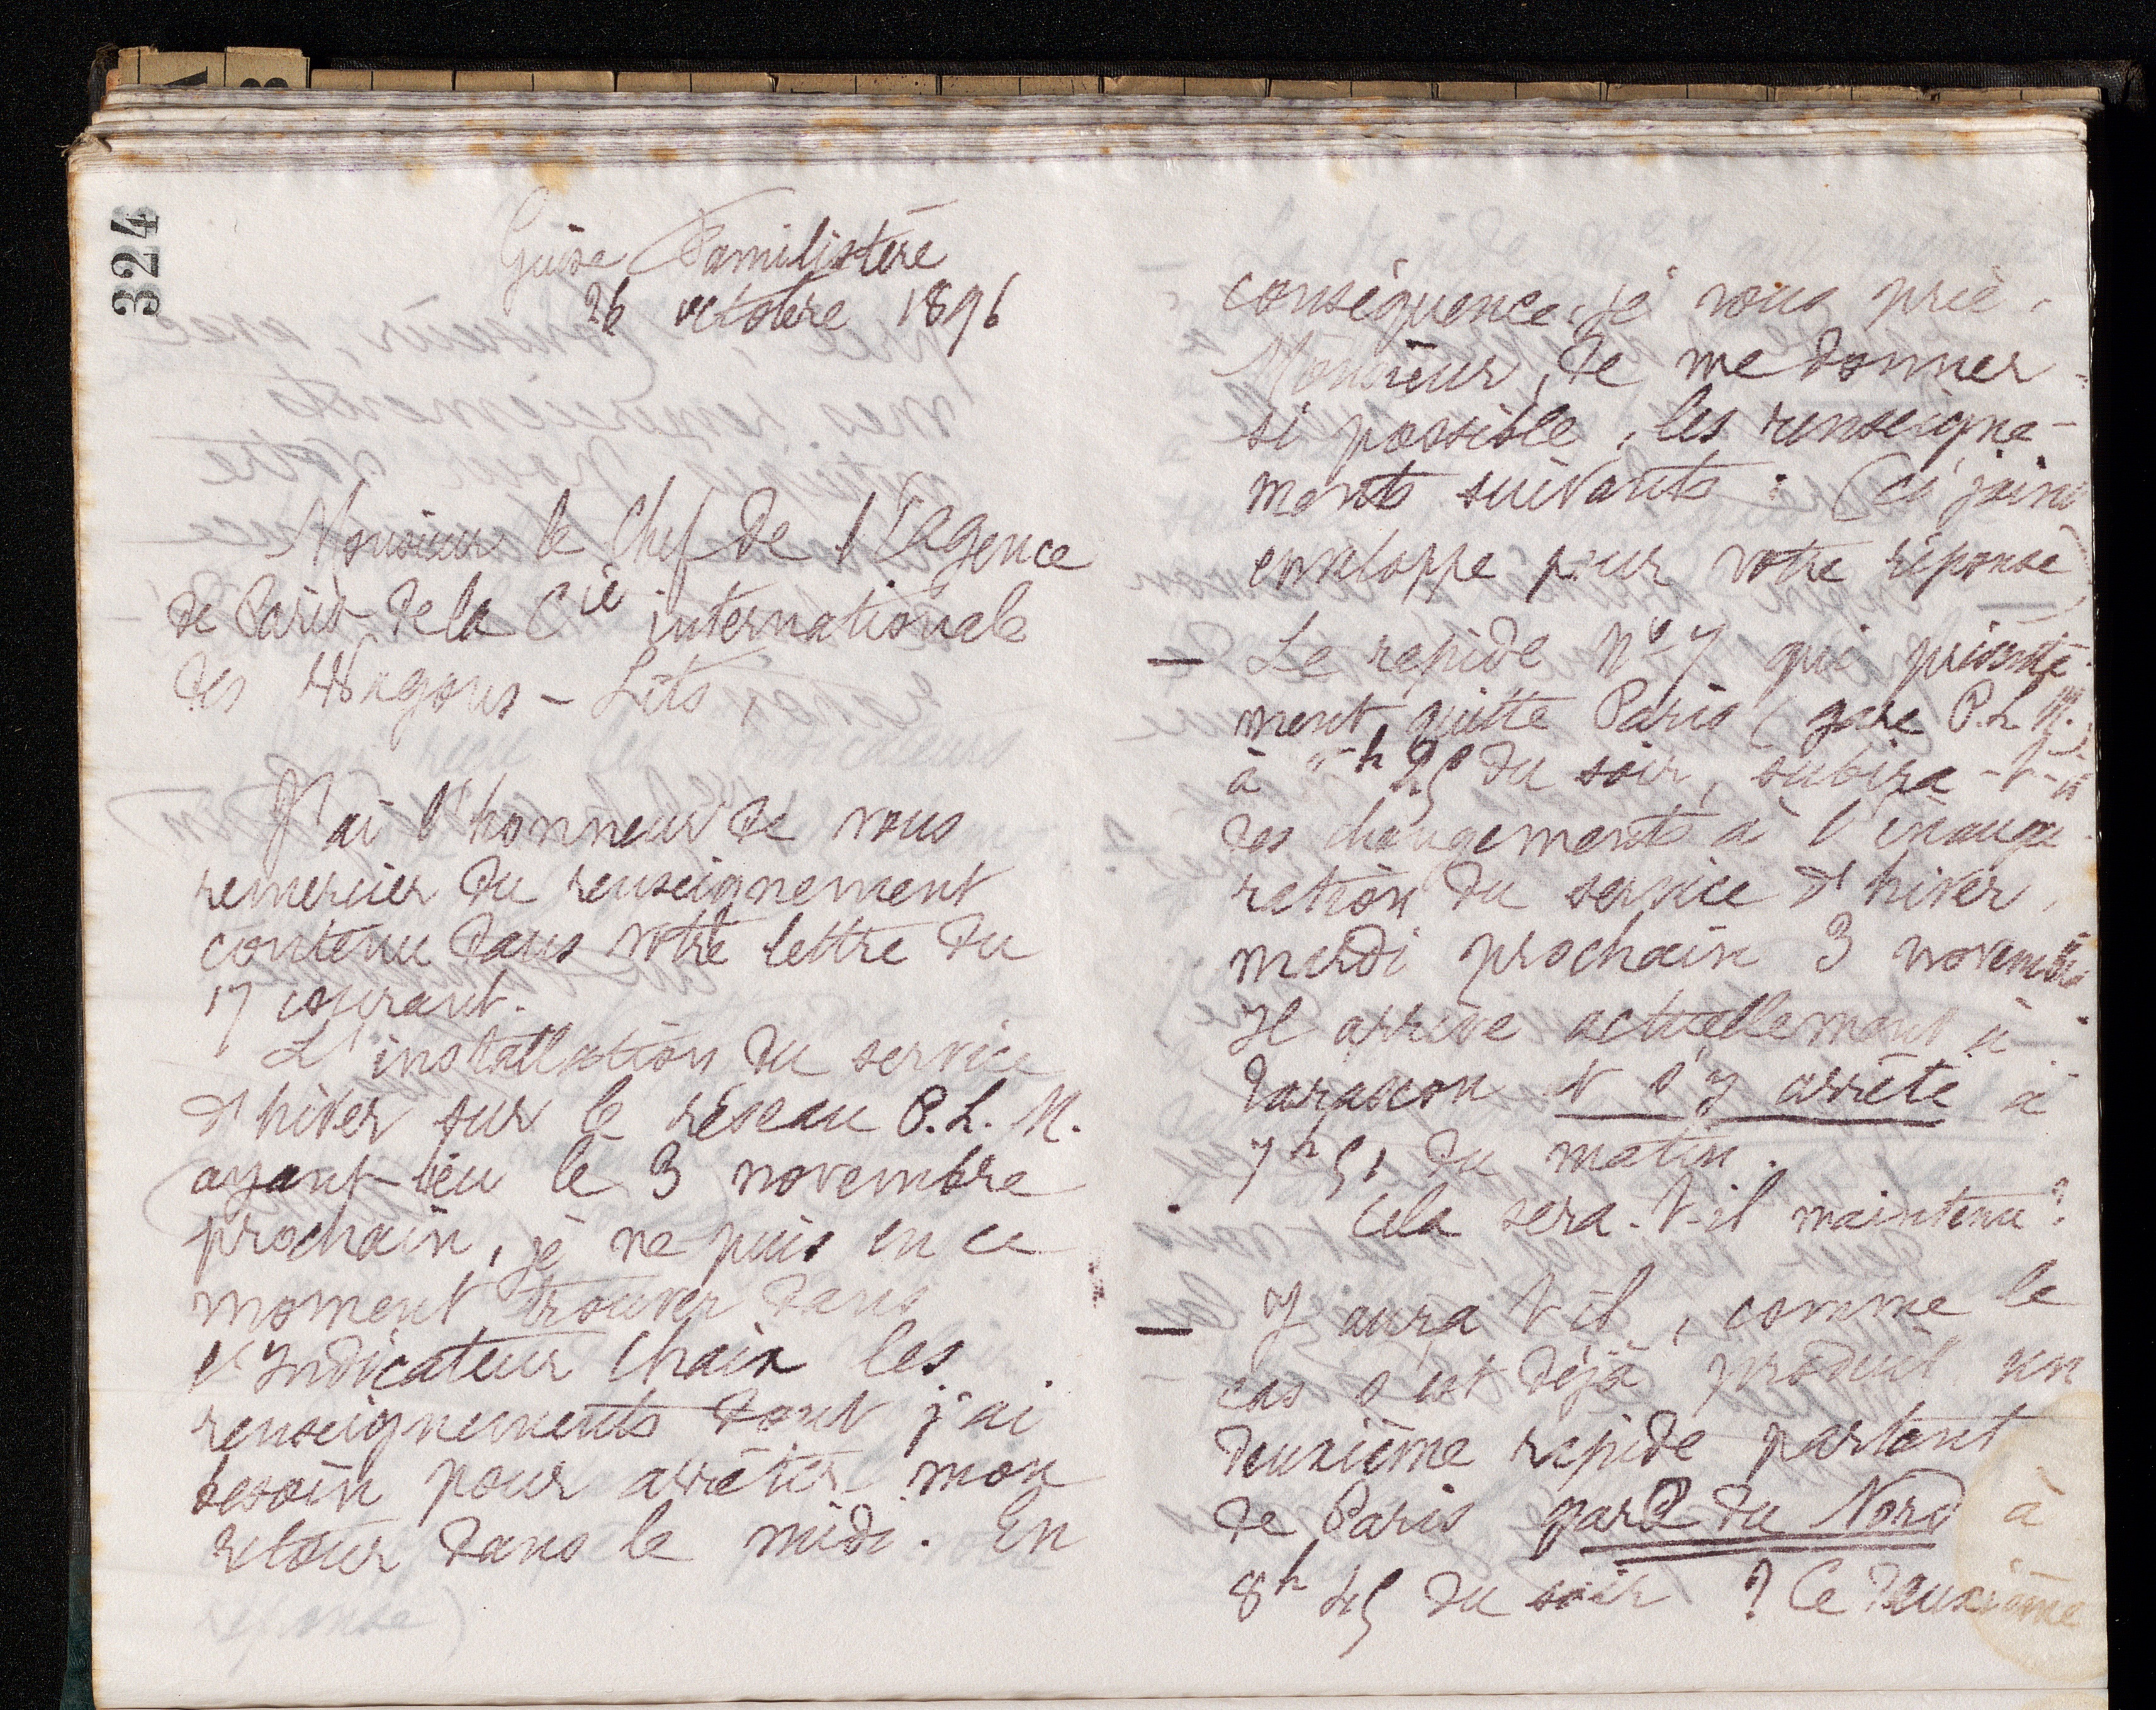 324
Guise Familistère
26 octobre 1896
Monsieur le Chef de l'Agence
de Paris de la Cie internationale
des Wagons-Lits,
J'ai l'honneur de vous
remercier du renseignement
contenu dans votre lettre du
17 courant.
L'installation du service
d'hiver sur le réseau P. L. M.
ayant lieu le 3 novembre
prochain, je ne puis en ce
moment trouver dans
l'Indicateur Chaix les
renseignements dont j'ai
besoin pour arrêter mon
retour dans le midi. En
conséquence, je vous prie,
Monsieur, de me donner
si possible, les renseigne-
ments suivants : (ci joint
enveloppe pour votre réponse)
— Le rapide No 7 qui présente-
ment quitte Paris (gare P. L. M.)
à h 25 du soir, subira-t-il
des changements à l'inaugu
ration du service d'hiver,
mardi prochain 3 novembre
Il arrive actuellement à
Tarascon et s'y arrête à
7h 51 du matin.
Cela sera-t-il maintenu ?
— Y aura t il, comme le
cas s'est déjà produit un
deuxième rapide partant
de Paris gare du Nord à
8h 45 du soir ? Ce deuxième